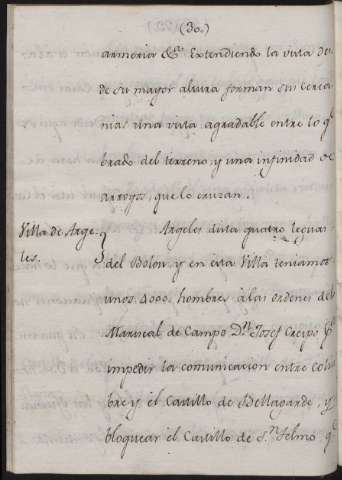 (30.)
armenia &a. Extendiendo la vista des
de su mayor altura forman sus cerca
nias una vista agradable entre lo q.
brado del terreno, y una infinidad de
arroyos, que lo cruzan.
Villa de Arge
les.
Argeles dista quatro leguas
del Bolon, y en esta Villa teniamos
unos 4000. hombres à las ordenes del
Mariscal de Campo Dn. Josef Crespo pa.
impedir la comunicacion entre Coliu
bre y el Castillo de Bellagarde, y
bloquear el Castillo de Sn. Telmo q.